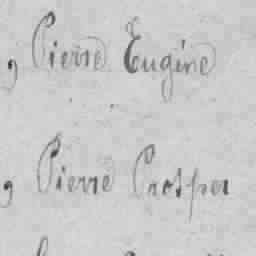 , Pierre Eugène
, Pierre Prosper